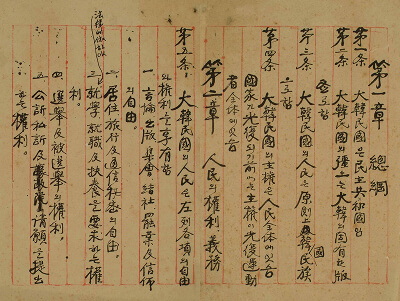 第一章 總綱
第一条 大韓民國은民主共和國임
第二条 大韓民國의疆土는大韓의固有한版
圖로함
第三条 大韓民國의人民은原則上韓國民族
으로함
第四条 大韓民國의主權은人民全体에잇슴
國家가光復되기前에는主權이光復運動
者全体에잇슴
第二章 人民의權利義務
第五条 大韓民國의人民은左列各項의自由
와權利를享有함
一 言論出版集會結社罷業及信仰
의自由。
二 居住旅行及通信秘密의自由。
三 就學就職及扶養을要求하는權
利。
四 選擧及被選擧의權利。
五 公訴私訴及請願을提出
하는權利。